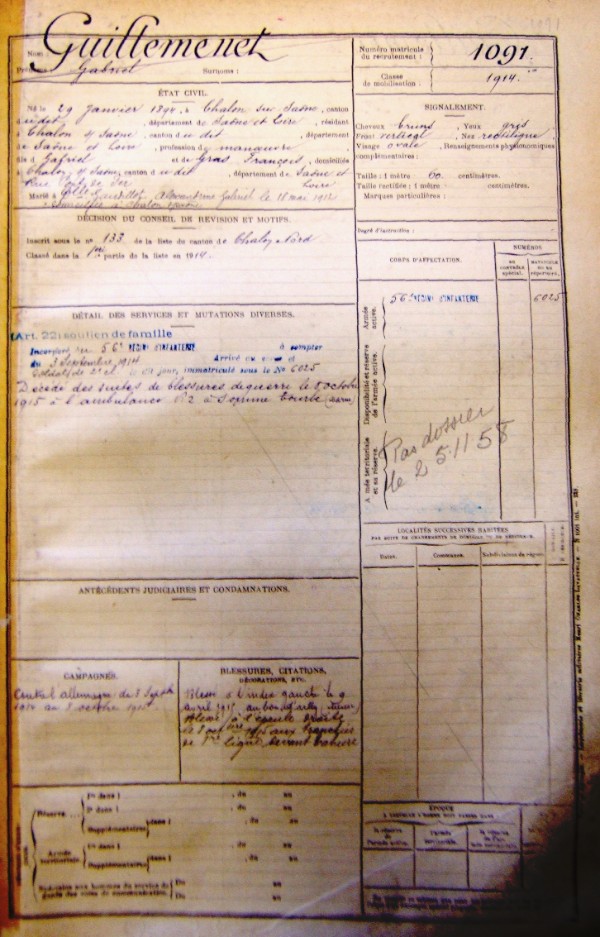 Nom : Guillemenet
Prénoms : Gabriel Surnoms :
Numéro matricule du recrutement : 1091.
Classe de mobilisation : 1914.
ÉTAT CIVIL.
Né le 29 Janvier 1894, à Chalon sur Saône, canton
dudit, département de Saône et Loire, résidant
à Chalon s/ Saône, canton dudit, département
de Saône et Loire, profession de manœuvre
fils de Gabriel et de Gras Françoise, domiciliés
à Chalon s/ Saône, canton dudit, département de Saône et
Loire
Marié à Gabriel le 16 mai 1912
SIGNALEMENT.
Cheveux bruns, Yeux gris
Front vertical, Nez rectiligne
Visage ovale, Renseignements physionomiques
complémentaires :
Taille : 1 mètre 60 centimètres.
Taille rectifiée : 1 mètre centimètres.
Marques particulières :
Degré d'instruction :
DÉCISION DU CONSEIL DE RÉVISION ET MOTIFS.
Inscrit sous le n° 133 de la liste du canton de Chalon Nord
Classé dans la 1ère partie de la liste en 1914.
DÉTAIL DES SERVICES ET MUTATIONS DIVERSES.
(Art. 22) soutien de famille
Incorporé au 56e RÉGIMt D'INFANTERIE à compter
du 3 Septembre 1914 Arrivé au corps et
soldat de 2e cl. le dit jour, immatriculé sous le No 6025
Décédé des suites de blessures de guerre le 8 octobre
1915 à l'ambulance à Somme Tourbe (Marne)
CORPS D'AFFECTATION.
NUMÉROS
au contrôle spécial.
matricule ou au répertoire.
Armée active.
56e RÉGIMt D'INFANTERIE
6025
Disponibilité et réserve de l'armée active.
Armée territoriale et sa réserve.
Pas dossier
le 25.11.58
LOCALITÉS SUCCESSIVES HABITÉES
PAR SUITE DE CHANGEMENTS DE DOMICILE OU DE RÉSIDENCE.
Dates. Communes. Subdivisions de région.
ANTÉCÉDENTS JUDICIAIRES ET CONDAMNATIONS.
CAMPAGNES.
Contre l'Allemagne du 3 Septbre
1914 au 8 octobre 1915
BLESSURES, CITATIONS,
DÉCORATIONS, ETC.
Blessé à l'index gauche le 9
avril 1915 au bois d'Ailly
Blessé à l'épaule droite
le 8 octobre 1915 aux tranchées
de 1ère ligne devant Tahure
Réserve
1re dans l , du au
2e dans l , du au
Supplémentaires dans l , du au
Armée territoriale.
1re dans l , du au
Supplémentaires dans l , du au
Du au
Du au
ÉPOQUE
À LAQUELLE L'HOMME DOIT PASSER DANS
la réserve de l'armée active.
l'armée territoriale.
la réserve de l'armée territoriale.